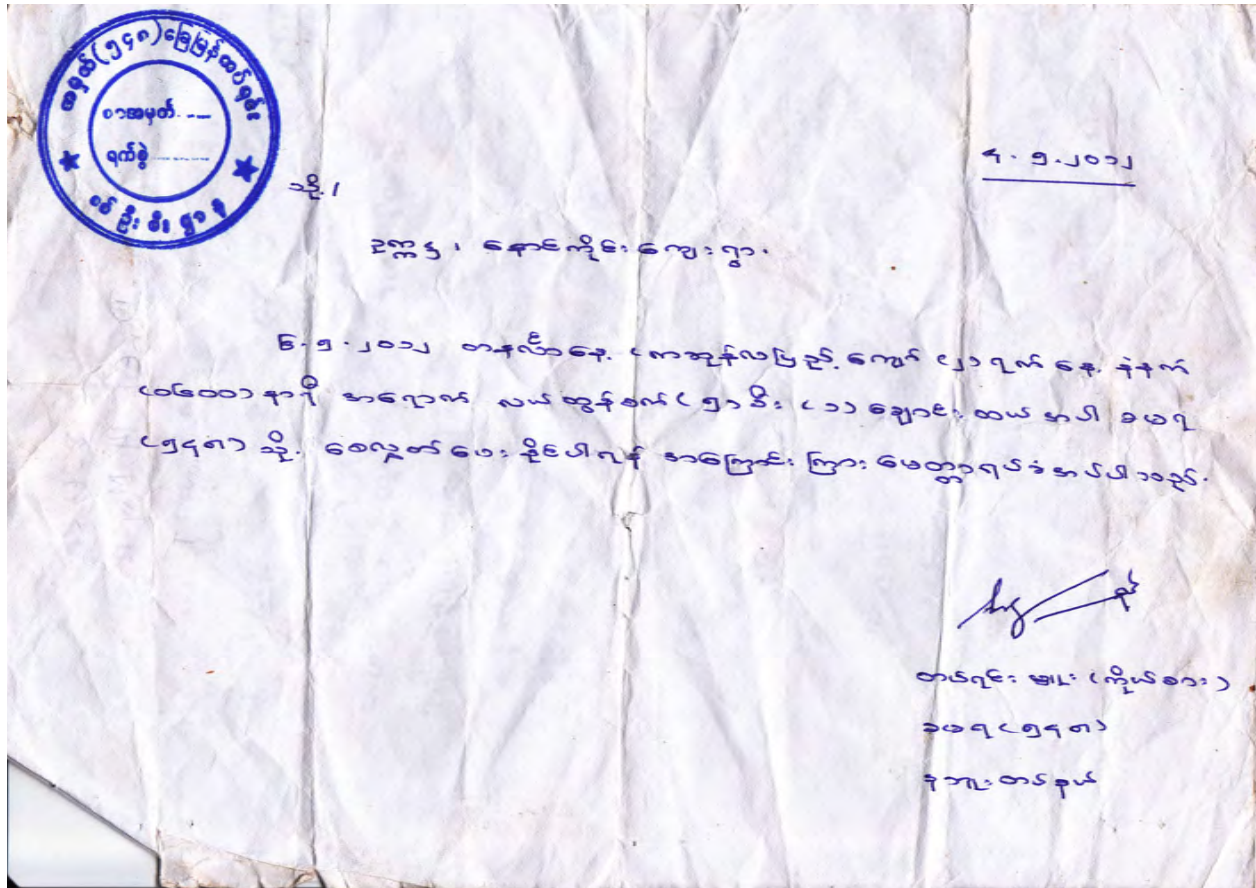 အမှတ်(၅၄၈)ခြေမြန်တပ်ရင်း
စာအမှတ်. ---
ရက်စွဲ .........
စစ် ဦး စီး ဌာ န
၄. ၅. ၂၀၁၂
သို့ /
ဥက္ကဋ္ဌ ၊ နောင်ကိုင်းကျေးရွာ.
၆. ၅. ၂၀၁၂ တနင်္လာနေ့ (ကဆုန်လပြည့်ကျော် (၂) ရက်နေ့ နံနက်
(၀၆၀၀) နာရီ အရောက် လယ်ထွန်စက် (၅) စီး (၁) ချောင်းထယ် အပါ ခမရ
(၅၄၈) သို့ စေလွှတ်ပေးနိုင်ပါရန် အကြောင်းကြား မေတ္တာရပ်ခံအပ်ပါသည်.
တပ်ရင်းမှူး (ကိုယ်စား)
ခမရ (၅၄၈)
နဘူးတပ်နယ်